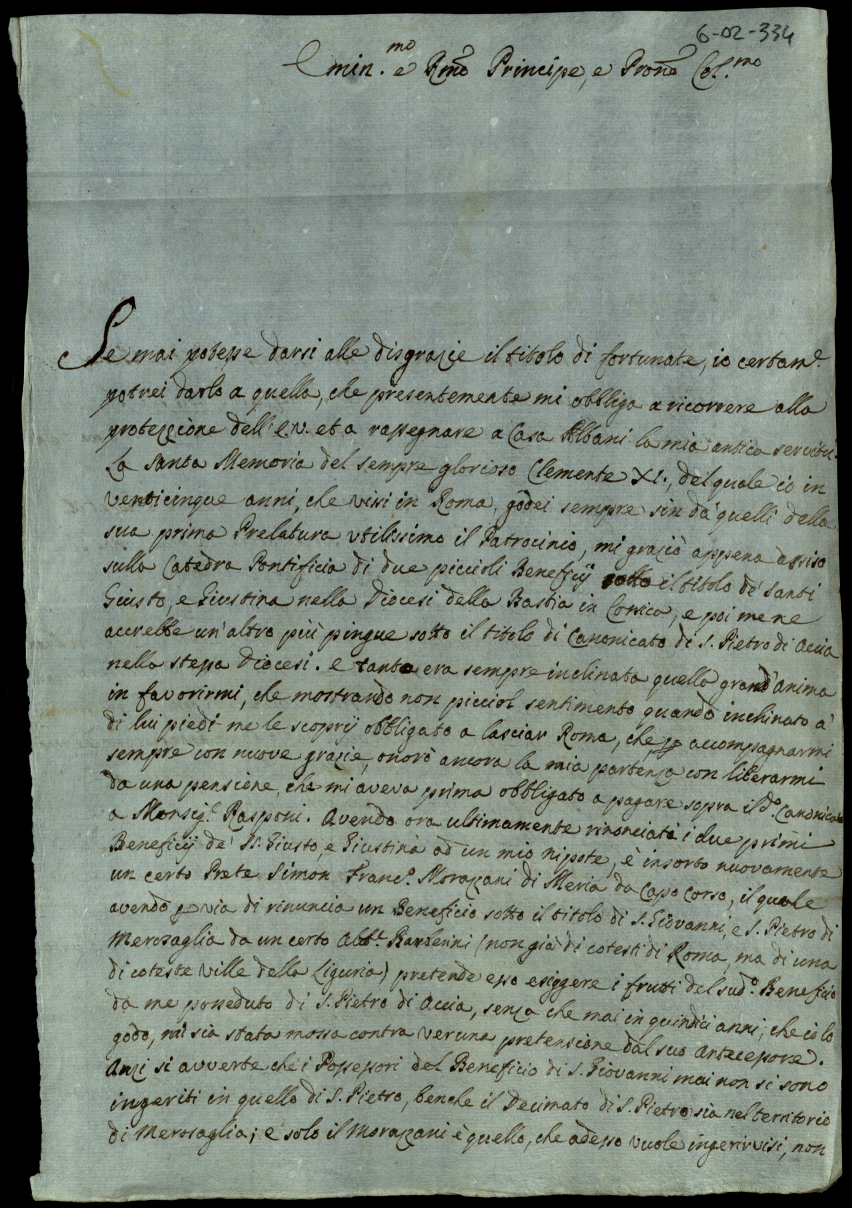 6-02-334
Emin.mo e Rmo Principe, e Prone Col.mo
Se mai potesse darsi alle disgrazie il titolo di fortunate, io certam.e
potrei darlo a quella, che presentemente mi obbliga a ricorrere alla
protezzione dell'E.V. et a rassegnare a Casa Albani la mia antica servitù.
La Santa Memoria del sempre glorioso Clemente XI., del quale io in
venticinque anni, che vissi in Roma, godei sempre sin da quelli della
sua prima Prelatura utilissimo il Patrocinio, mi graziò appena assiso
sulla Catedra Pontificia di due piccioli Beneficij sotto il titolo de' Santi
Giusto, e Giustina nella Diocesi della Bastia in Corsica, e poi me ne
accrebbe un'altro più pingue sotto il titolo di Canonicato di S. Pietro di Accia
nella stessa Diocesi. e tanto era sempre inclinata quella grand'anima
in favorirmi, che mostrando non picciol sentimento quando inchinato a'
di lui piedi me le scoprij obbligato a lasciar Roma, che p accompagnarmi
sempre con nuove grazie, onorò ancora la mia partenza con liberarmi
da una pensione, che mi aveva prima obbligato a pagare sopra il do. Canonicato
a Monsig.r Rasponi. Avendo ora ultimamente rinonciati i due primi
Beneficij de' SS. Giusto, e Giustina ad un mio nipote, è insorto nuovamente
un certo Prete Simon Franc.o Morazzani di Meria da Capo Corso, il quale
avendo p via di rinuncia un Beneficio sotto il titolo di S. Giovanni, e S. Pietro di
Merosaglia da un certo Abb.e Barberini (non già di cotesti di Roma, ma di una
di coteste ville della Liguria) pretende esso esiggere i frutti del sud.o Beneficio
da me posseduto di S. Pietro di Accia, senza che mai in quindici anni, che io lo
godo, mi sia stata mossa contra veruna pretensione dal suo Antecessore.
Anzi si avverte che i Possessori del Beneficio di S. Giovanni mai non si sono
ingeriti in quello di S. Pietro, benche il Decimato di S. Pietro sia nel territorio
di Merosaglia; e solo il Morazzani è quello, che adesso vuole ingerirvisi, non